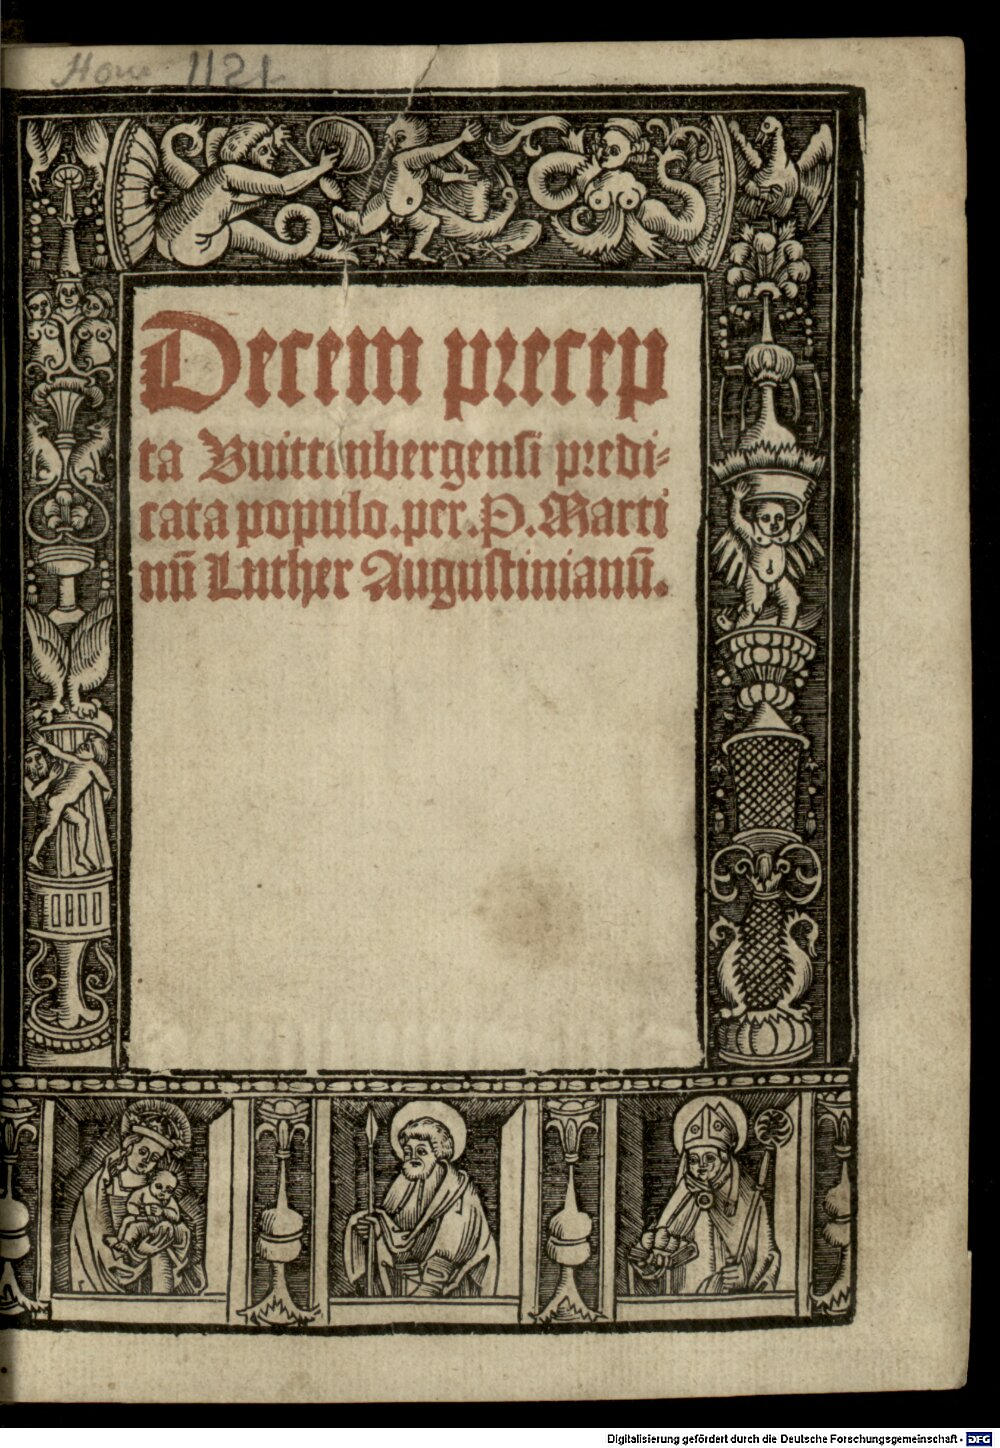 Hom 1121
Decem precep
ta Vuittenbergensi predi⸗
cata populo.per.P.Marti
nū Luther Augustinianū.
Digitalisierung gefördert durch die Deutsche Forschungsgemeinschaft - DFG